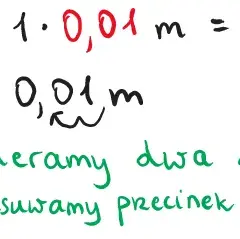 1 · 0,01 m =
0,01 m
dwa
suwamy przecinek